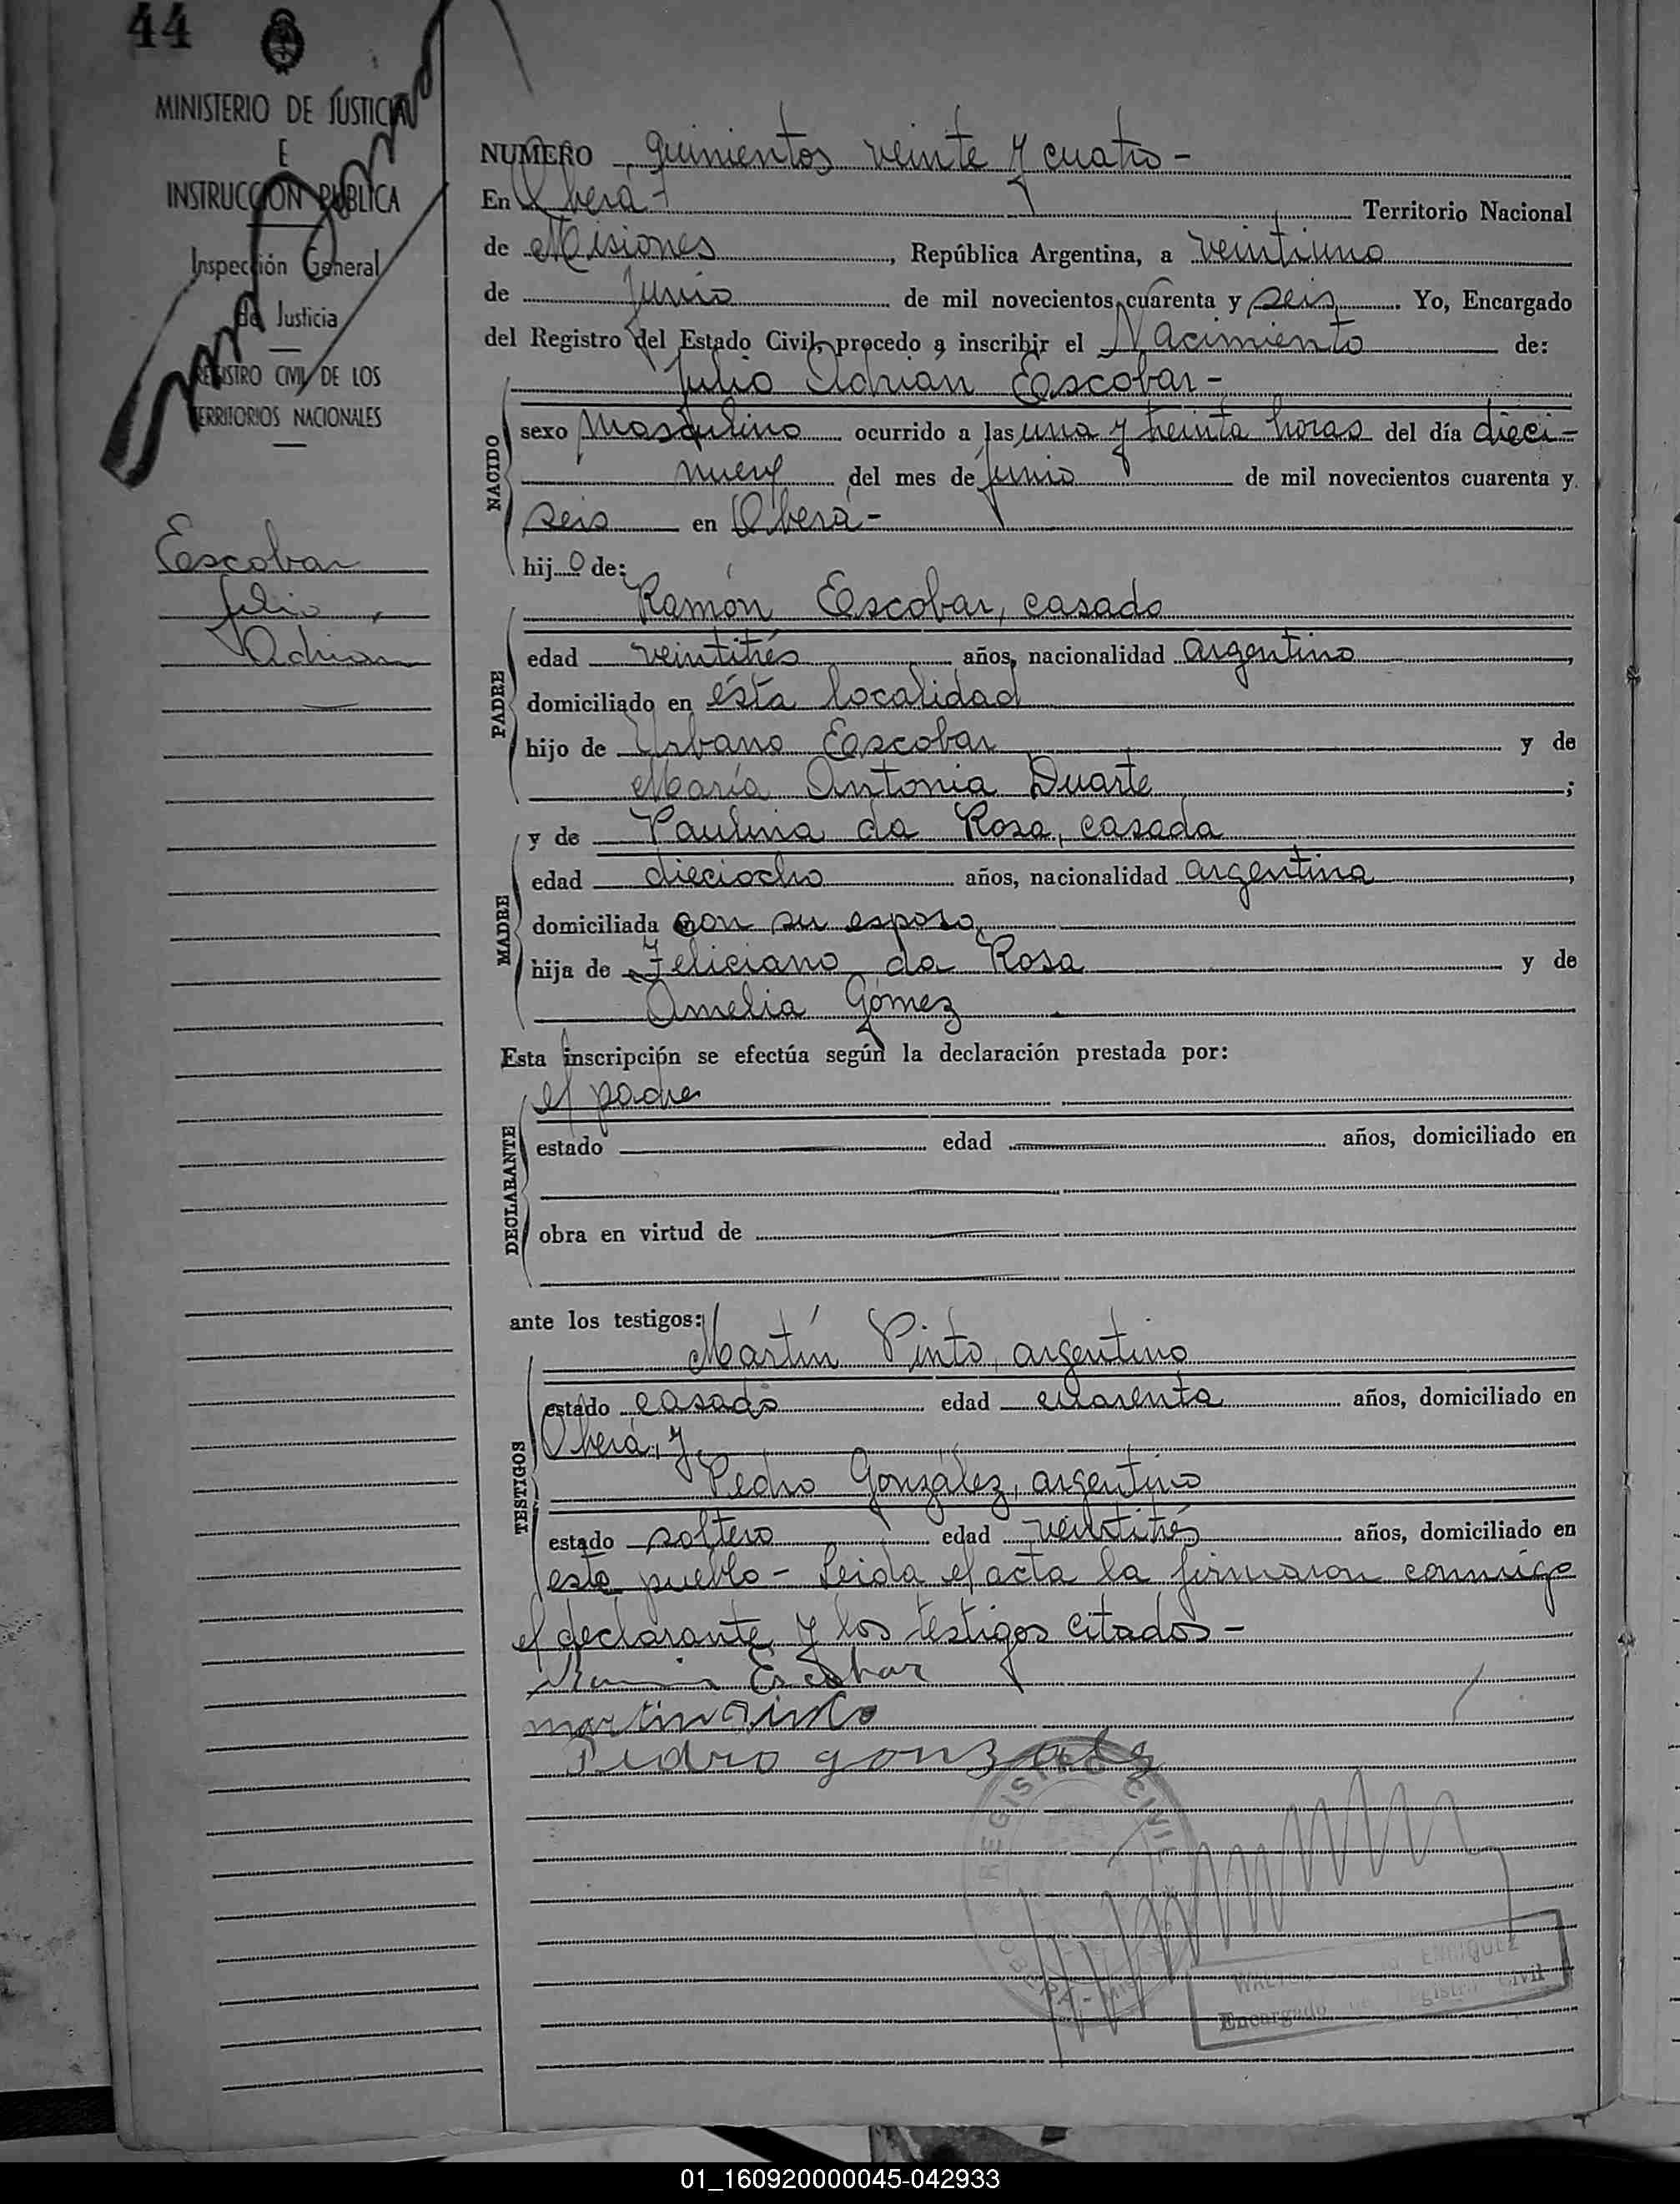 44
MINISTERIO DE JUSTICIA
E
INSTRUCCION PUBLICA
Inspección General
de Justicia
REGISTRO CIVIL DE LOS
TERRITORIOS NACIONALES
Escobar
Julio
Adrian
NUMERO quinientos veinte y cuatro -
En Oberá - Territorio Nacional
de Misiones, República Argentina, a veintiuno
de Junio de mil novecientos cuarenta y seis. Yo, Encargado
del Registro del Estado Civil, procedo a inscribir el Nacimiento de:
Julio Adrian Escobar -
NACIDO
sexo Masculino ocurrido a las una y treinta horas del día dieci-
nueve del mes de Junio de mil novecientos cuarenta y
seis en Oberá -
hijo de:
PADRE
Ramón Escobar, casado
edad veintitrés años, nacionalidad argentino,
domiciliado en ésta localidad
hijo de Urbano Escobar y de
María Antonia Duarte;
MADRE
y de Paulina da Rosa, casada
edad dieciocho años, nacionalidad argentina,
domiciliada con su esposo,
hija de Feliciano da Rosa y de
Amelia Gómez
Esta inscripción se efectúa según la declaración prestada por:
DECLARANTE
el padre
estado edad años, domiciliado en
obra en virtud de
ante los testigos:
TESTIGOS
Martín Pinto, argentino
estado casado edad cuarenta años, domiciliado en
Oberá, y
Pedro González, argentino
estado soltero edad veintitrés años, domiciliado en
este pueblo - Leida el acta la firmaron conmigo
el declarante y los testigos citados -
Ramon Escobar
martin Pinto
Pedro gonzalez
REGISTRO CIVIL
ENRIQUEZ
Encargado Registro Civil
01_160920000045-042933